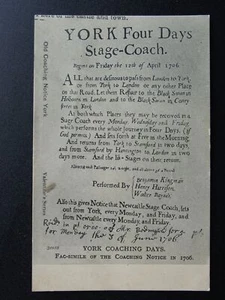 YORK Four Days
Stage-Coach.
Begins on Friday the 12th of April 1706.
ALL that are desirous to pass from London to York,
or from York to London or any other Place
on that Road; Let them Repair to the Black Swan in
Holborn in London and to the Black Swan in Coney
street in York
At both which Places they may be received in a
Stage Coach every Monday, Wednesday and Friday,
which performs the whole Journey in Four Days, (if
God permits.) And sets forth at Five in the Morning
And returns from York to Stamford in two days,
and from Stamford by Huntington to London in two
days more. And the like Stages on their return.
Performed By
Benjamin Kingman
Henry Harrison
Walter Baynes
Also this gives Notice that Newcastle Stage Coach, sets
out from York, every Monday, and Friday, and
from Newcastle every Monday, and Friday.
for Monday the 3 of June 1706
YORK COACHING DAYS.
FAC-SIMILE OF THE COACHING NOTICE IN 1706.
Old Coaching Notice York